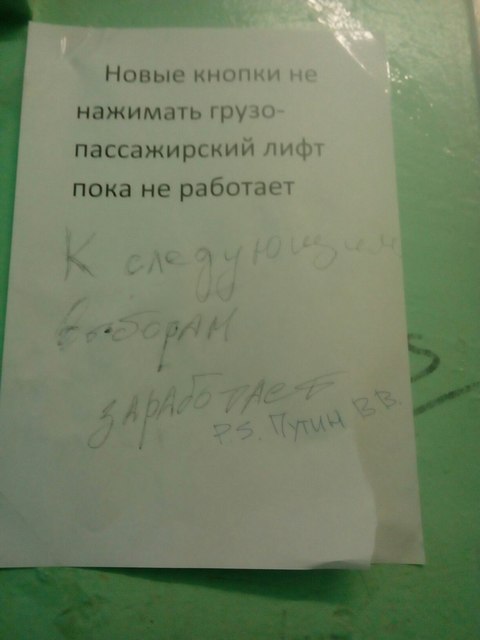 Новые кнопки не
нажимать грузо-
пассажирский лифт
пока не работает
К следующим
выборам
заработает
P.S. Путин В В.